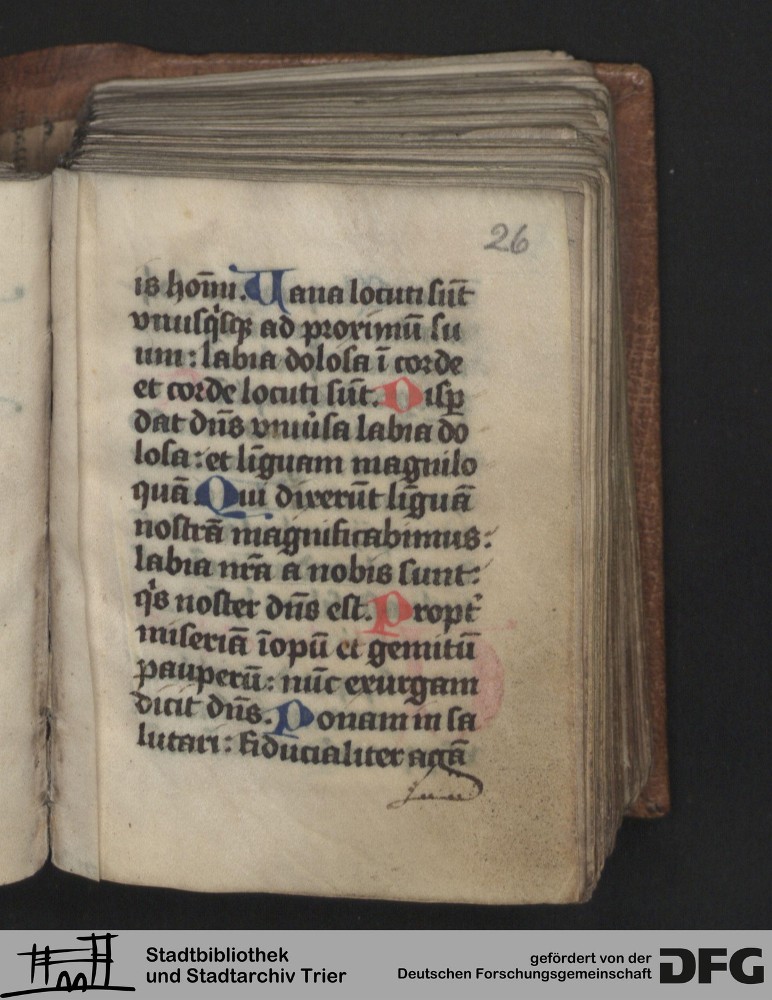 26
is hoīm. Uana locuti sūt
vnusqͥsqꝫ ad proximū su
um : labia dolosa ī corde
et corde locuti sūt. Disꝑ
dat dn̄s vniu͛sa labia do
losa : et līguam magnilo
quā. Qui dixerūt līguā
nostrā magnificabimus :
labia nr̄a a nobis sunt :
qͥs noster dn̄s est. Propt͛
miseriā īopū et gemitū
pauperū : nūc exurgam
dicit dn̄s. Ponam in sa
lutari : fiducialiter agā
Stadtbibliothek
und Stadtarchiv Trier
gefördert von der
Deutschen Forschungsgemeinschaft
DFG